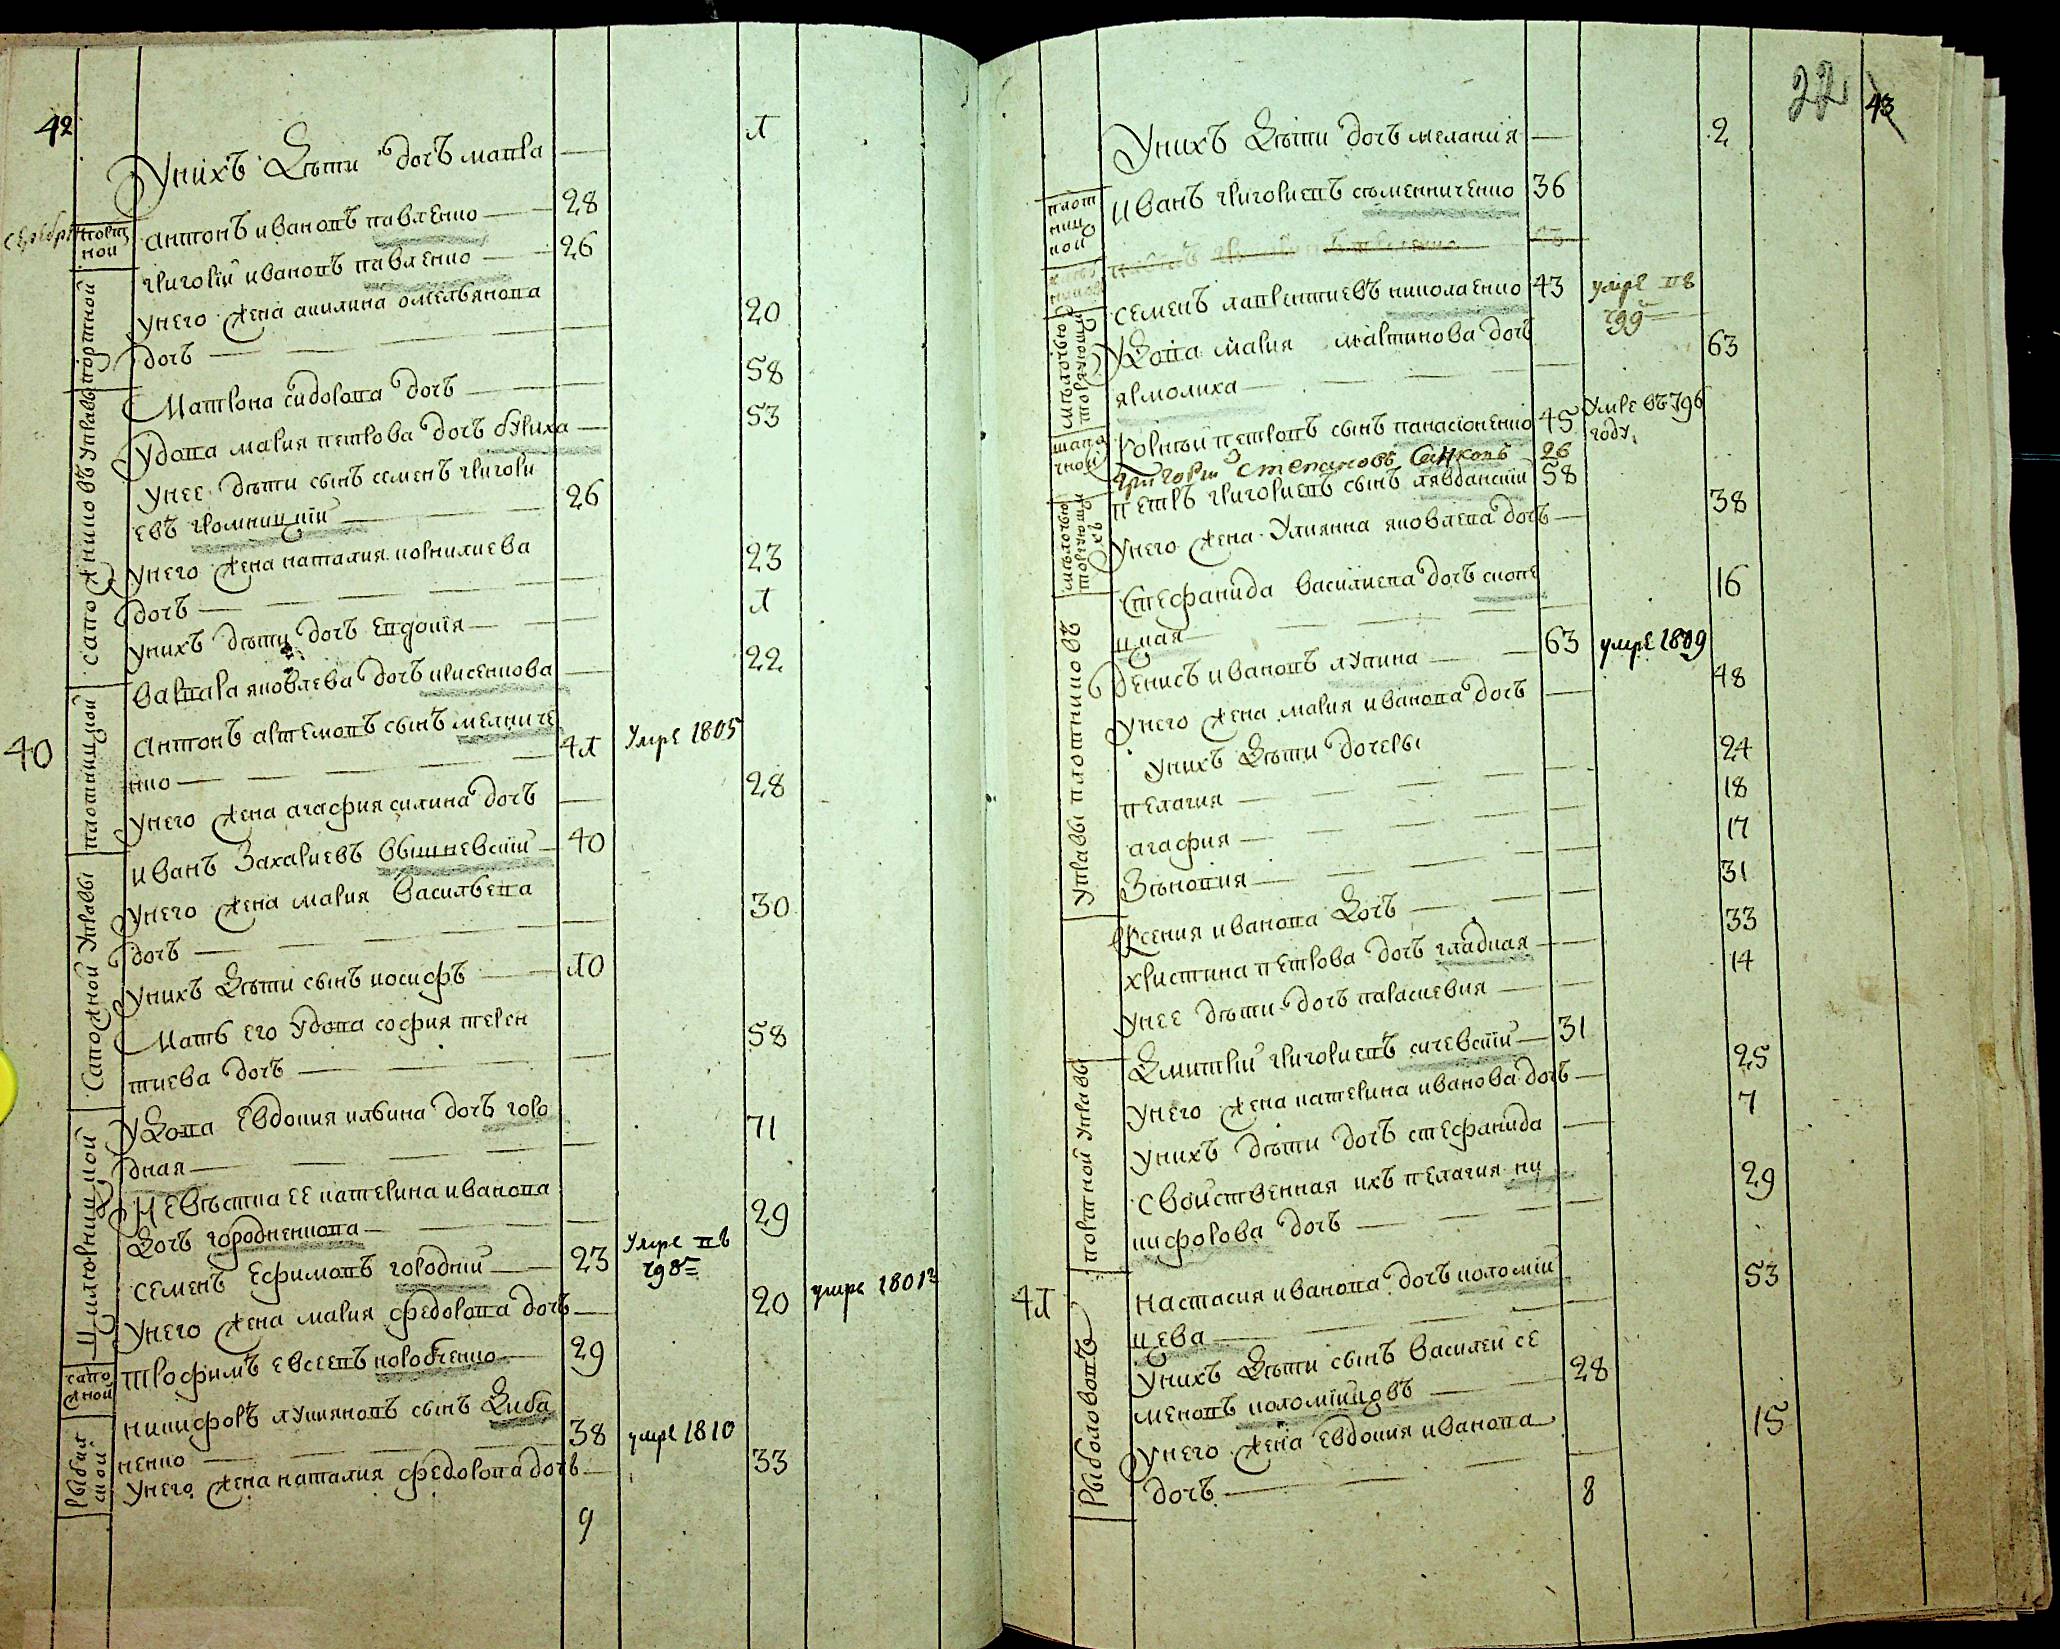 42
Унихъ Дѣти дочь мавра — 1
портной
Антонъ ивановъ павленко — 28
Григорій ивановъ павленко — 26
портной
унего жена акилина омельянова
дочь — 20
Матрона сидорова дочь — 58
Удова мария петрова дочь буриха — 53
унее дѣти сынъ семенъ григори
евъ громницкій — 26
сапожнико въ управѣ
унего жена наталия корнилиева
дочь — 23
унихъ дѣти дочь Евдокія — 1
варвара яковлева дочь крисенкова — 22
40
плотницкой
Антонъ артемовъ сынъ мелниче
нко — 41 Умре 1805
унего жена агафия силина дочь — 28
Сапожной управы
иванъ Захариевъ вышневскій — 40
унего жена мария васильева
дочь — 30
унихъ Дѣти сынъ иосифъ — 10
Мать его удова софия терен
тиева дочь — 58
удова Евдокия ильина дочь голо
дная — 71
Невѣстка ее катерина иванова
Дочь городненкова — 29
семенъ Ефимовъ голодній — 23 Умре въ 798
унего жена мария федорова дочь — 20 умре 1801
сапожной
трофимъ евсеевъ коробченко — 29
рыбал ской
никифоръ лукяновъ сынъ Диба
ненко — 38 умре 1810
унего жена наталия федорова дочь — 33
9
22 43
Унихъ Дѣти дочь мелания — 2
плот ниц кой
иванъ григориевъ семенниченко 36
семенъ лаврентиевъ николаенко 43 умре въ 799
мѣлочью торгующой
Удова мария мартинова дочь 63
ярмолиха —
шапо чной
корній петровъ сынъ панасюненко 45 Умре въ 796 году.
Григорій Степановъ Санковъ 26
мѣлочью торгующихъ
петръ григориевъ сынъ лявданскій 58
унего жена Улиянна яковлева дочь — 38
Стефанида василиева дочь скопе
цкая — 16
управы плотнико въ
денисъ ивановъ лупина — 63 умре 1809
унего жена мария иванова дочь — 48
унихъ Дѣти дочери
пелагия — 24
агафия — 18
Зѣновия — 17
Ксения иванова Дочь — 31
христина петрова дочь гладкая — 33
унее дѣти дочь параскевия — 14
портной управы
Дмитрій григориевъ сичевскій — 31
унего жена катерина иванова дочь — 25
унихъ дѣти дочь стефанида — 7
свойственная ихъ пелагия ни
кифорова дочь — 29
41
рыболововъ
Настасия иванова дочь коломій
цева — 53
унихъ Дѣти сынъ василей се
меновъ коломійцовъ — 28
унего жена евдокия иванова
дочь — 15
8